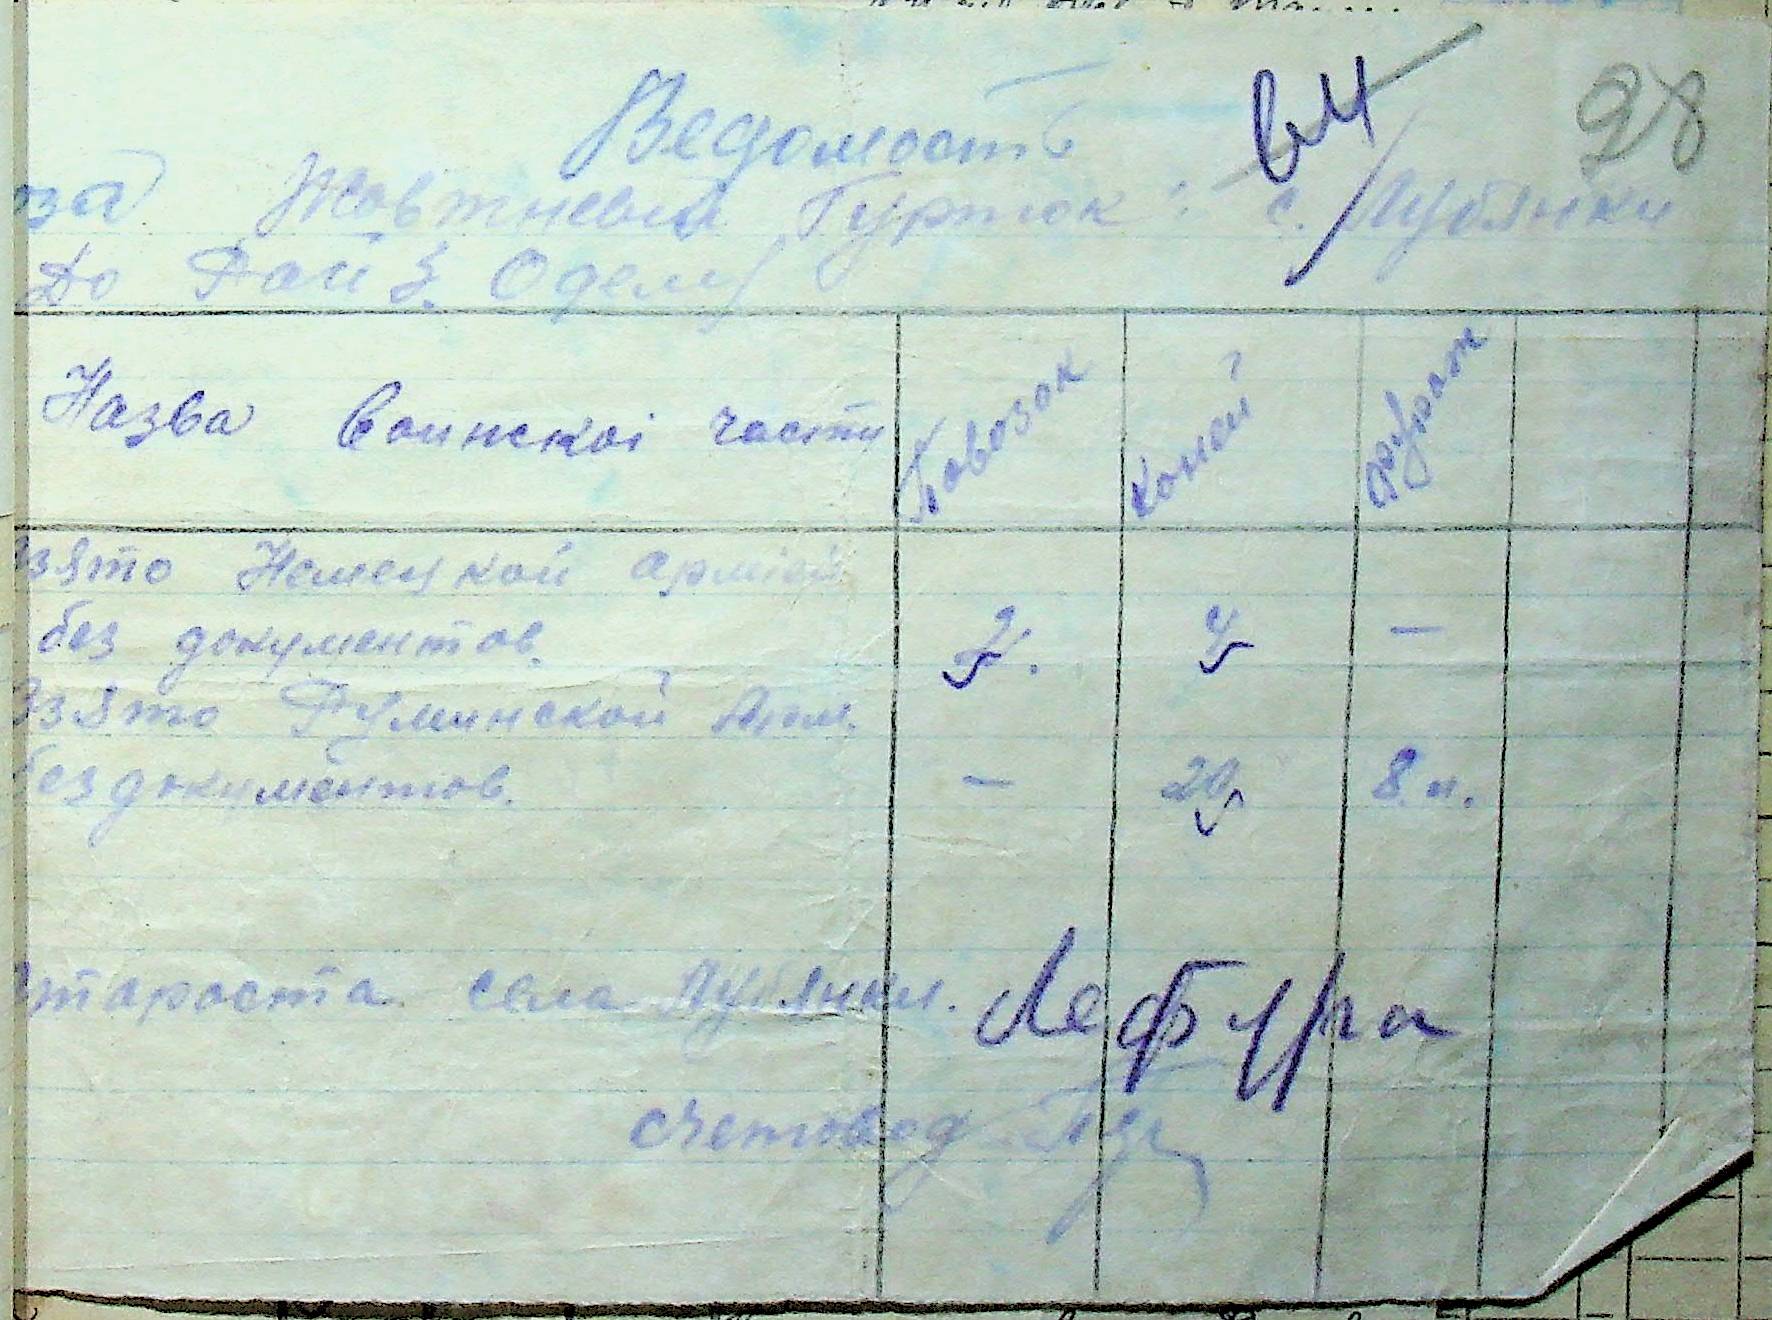 28
Ведомость
за Жовтневый Гурток: с. Лубянки
До Рай З. Оделу
Назва воинскоі части Повозок Коней фураж
Взято Немецкой армией
без документов. 2. 4 —
Взято Румынской Арм.
без документов. — 20 8 ц.
Староста села Лубянки. Лефура
счетовод